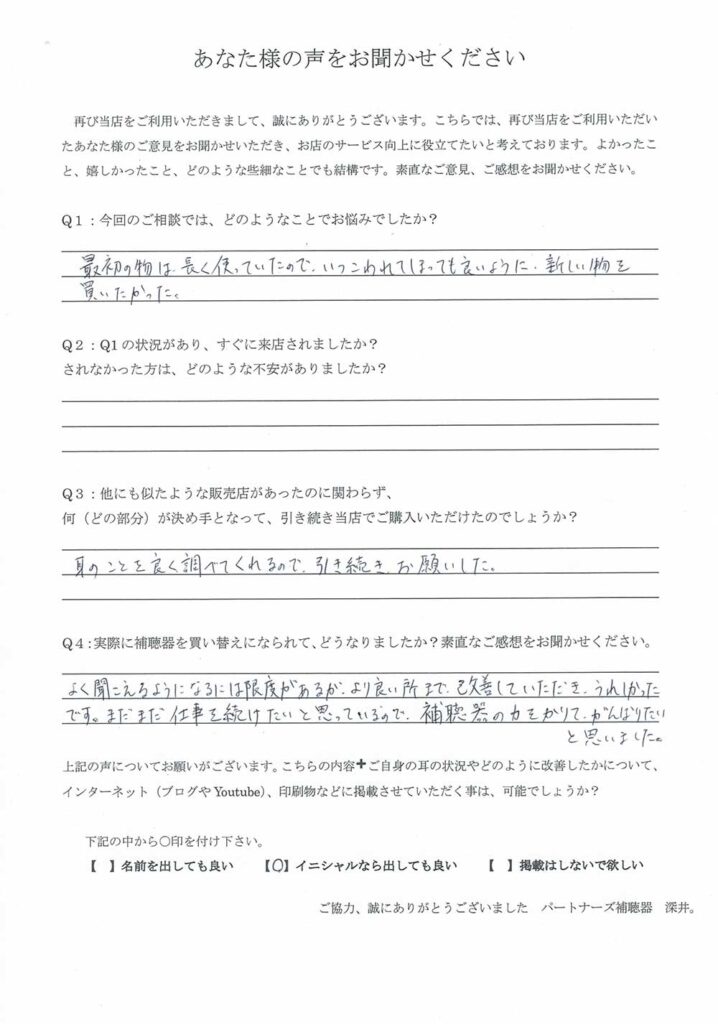 あなた様の声をお聞かせください
再び当店をご利用いただきまして、誠にありがとうございます。こちらでは、再び当店をご利用いただい
たあなた様のご意見をお聞かせいただき、お店のサービス向上に役立てたいと考えております。よかったこ
と、嬉しかったこと、どのような些細なことでも結構です。素直なご意見、ご感想をお聞かせください。
Q1：今回のご相談では、どのようなことでお悩みでしたか？
最初の物は、長く使っていたので、いつこわれてしまっても良いように、新しい物を
買いたかった。
Q2：Q1の状況があり、すぐに来店されましたか？
されなかった方は、どのような不安がありましたか？
Q3：他にも似たような販売店があったのに関わらず、
何（どの部分）が決め手となって、引き続き当店でご購入いただけたのでしょうか？
耳のことを良く調べてくれるので、引き続き、お願いした。
Q4：実際に補聴器を買い替えになられて、どうなりましたか？素直なご感想をお聞かせください。
よく聞こえるようになるには限度があるが、より良い所まで、改善していただき、うれしかった
です。まだまだ仕事を続けたいと思っているので、補聴器の力をかりて、がんばりたい
と思いました。
上記の声についてお願いがございます。こちらの内容+ご自身の耳の状況やどのように改善したかについて、
インターネット（ブログやYoutube）、印刷物などに掲載させていただく事は、可能でしょうか？
下記の中から〇印を付け下さい。
【　】名前を出しても良い　【〇】イニシャルなら出しても良い　【　】掲載はしないで欲しい
ご協力、誠にありがとうございました　パートナーズ補聴器　深井。